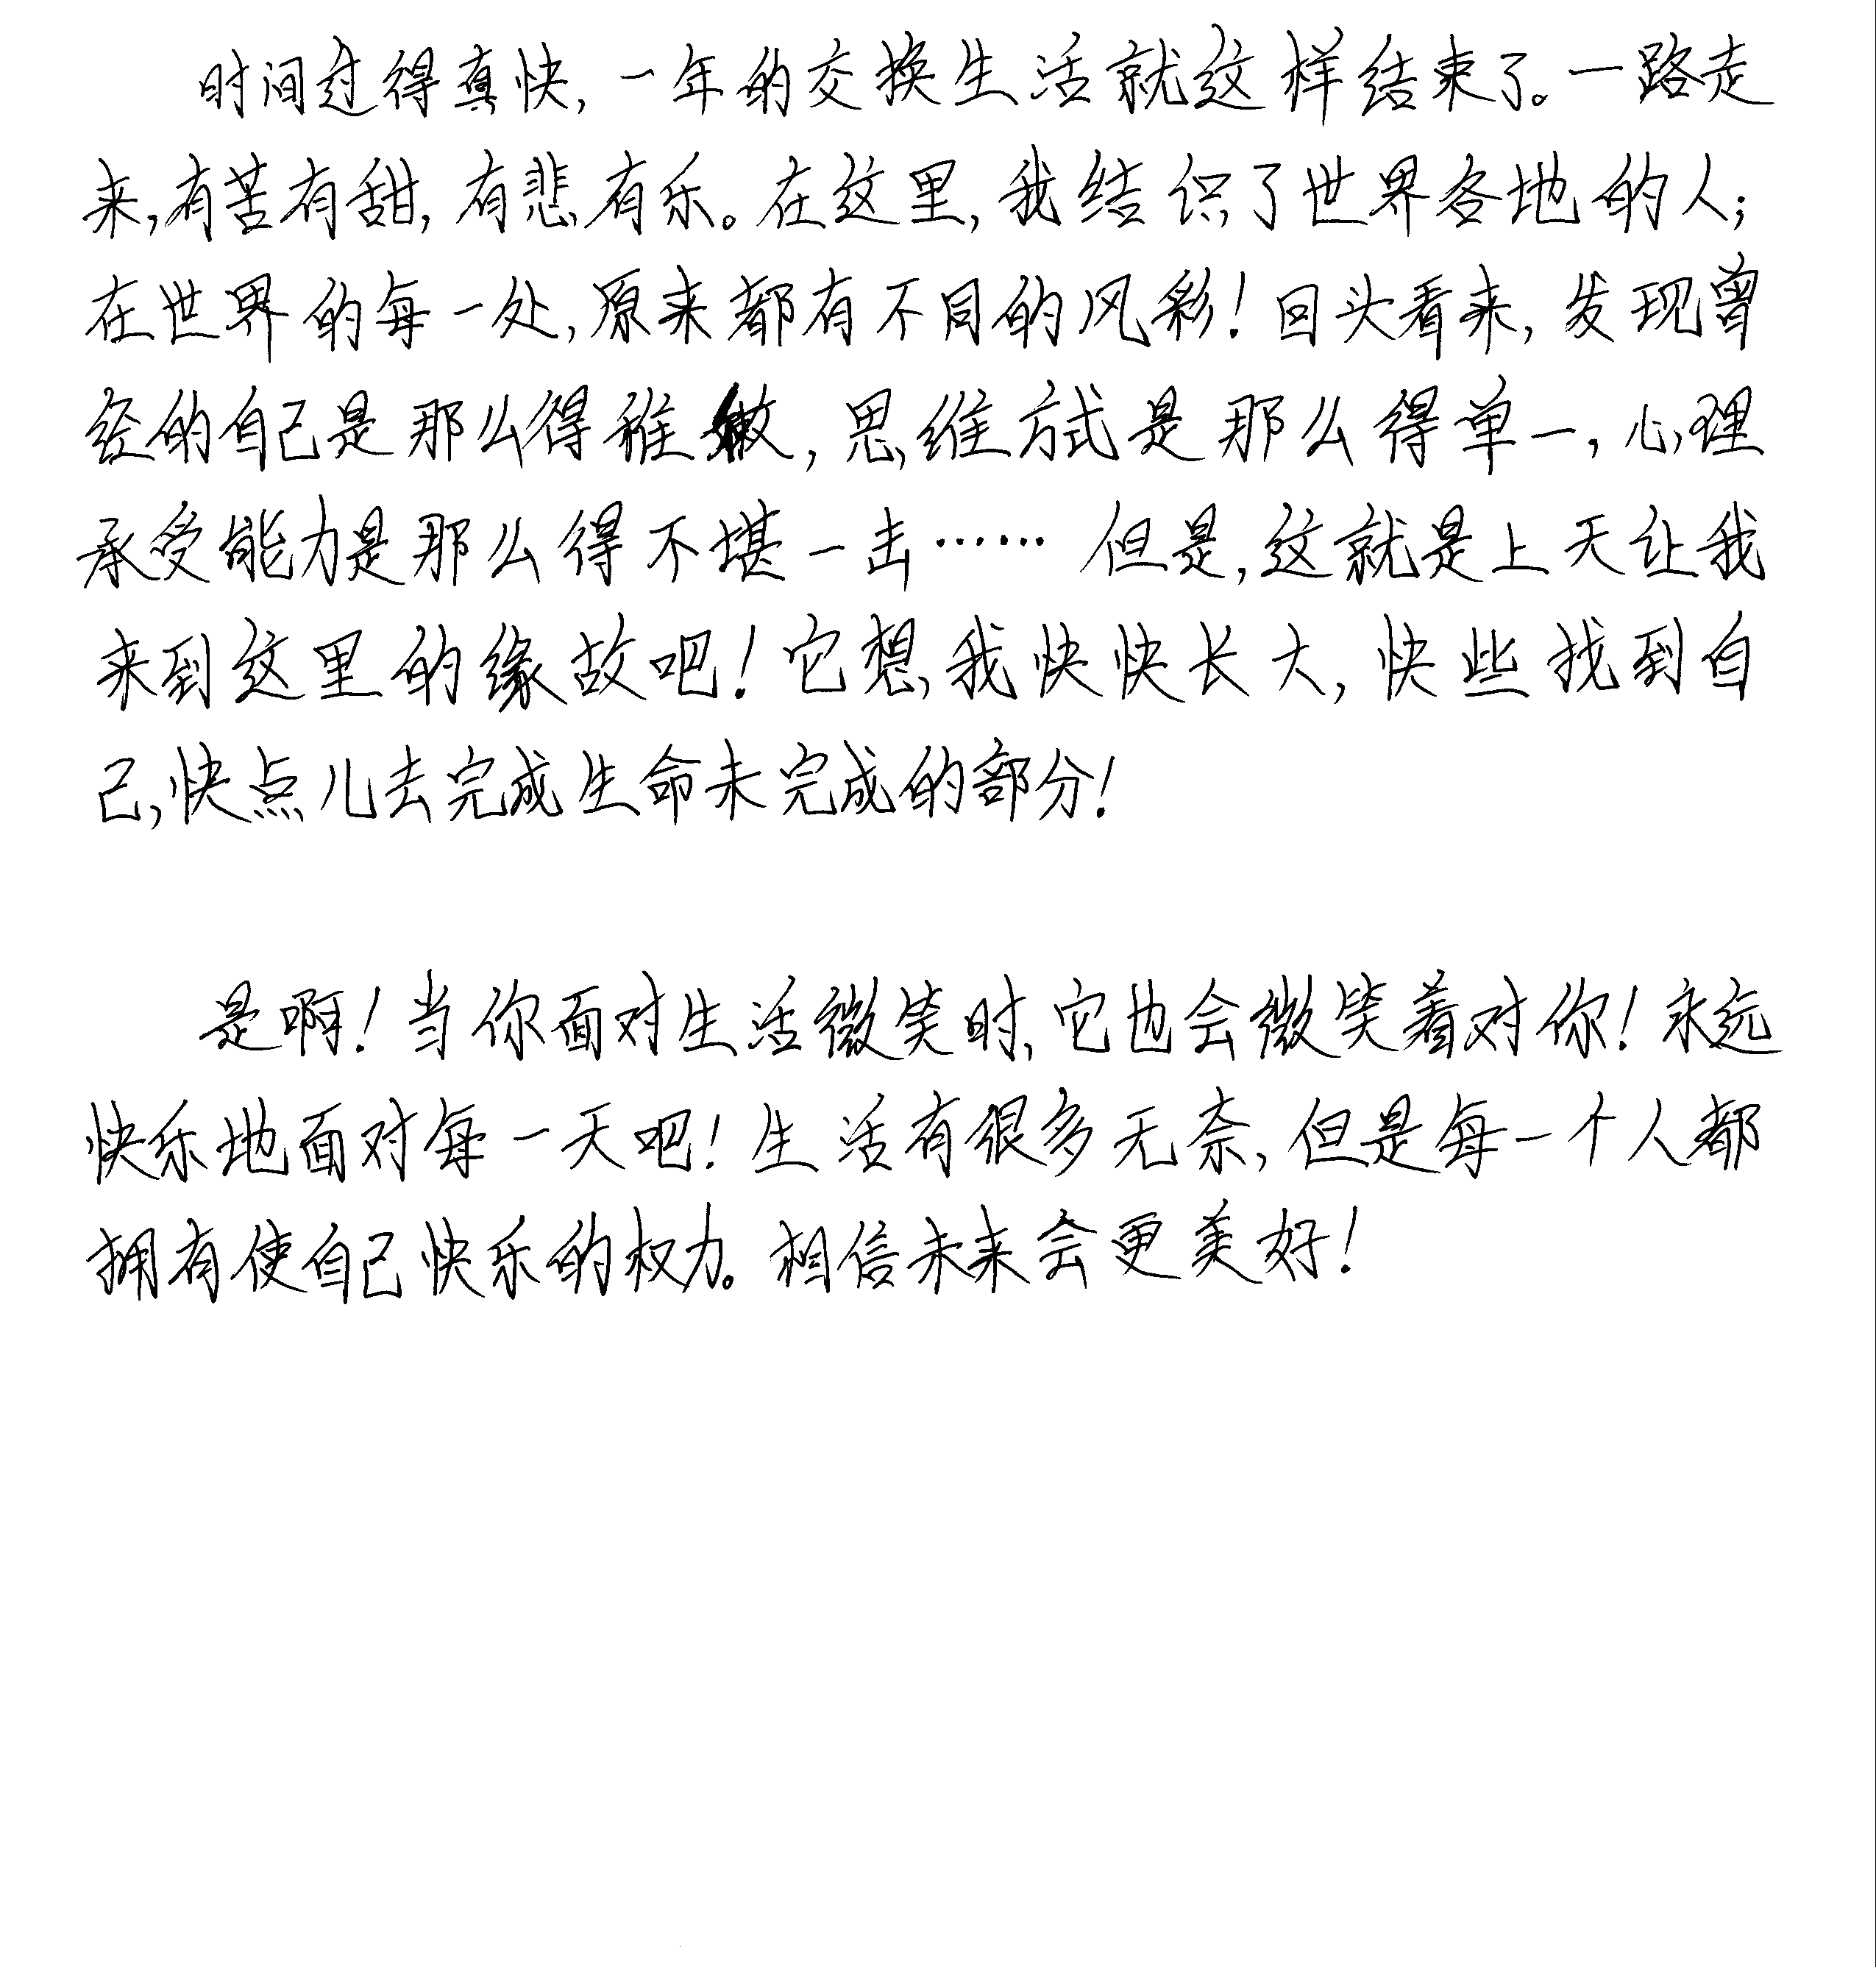 时间过得真快,一年的交换生活就这样结束了。一路走
来,有苦有甜,有悲有乐。在这里,我结识了世界各地的人;
在世界的每一处,原来都有不同的风彩!回头看来,发现曾
经的自己是那么得稚嫩,思维方式是那么得单一,心理
承受能力是那么得不堪一击……但是,这就是上天让我
来到这里的缘故吧!它想,我快快长大,快些找到自
己,快点儿去完成生命未完成的部分!
是啊!当你面对生活微笑时、它也会微笑着对你!永远
快乐地面对每一天吧!生活有很多无奈,但是每一个人都
拥有使自己快乐的权力。相信未来会更美好!